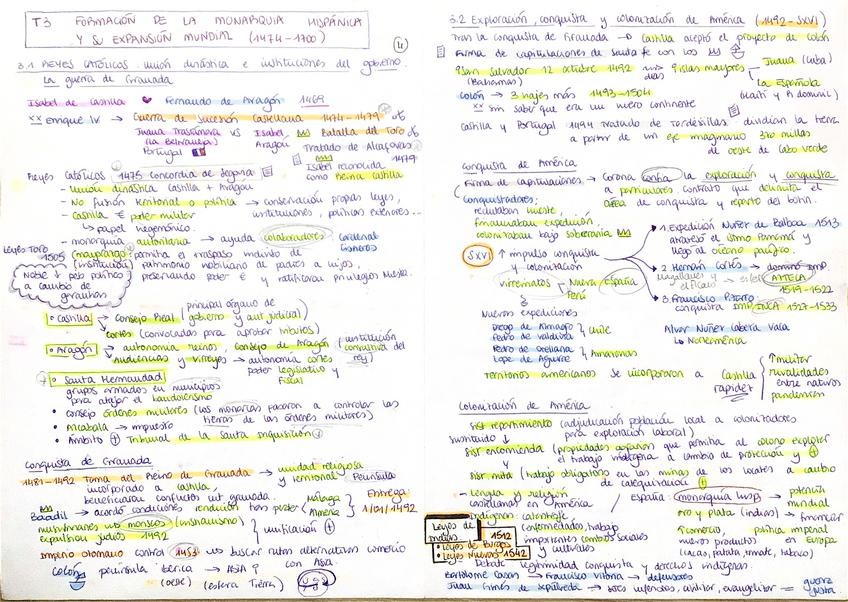 T3 FORMACIÓN DE LA MONARQUIA HISPÁNICA
Y SU EXPANSIÓN MUNDIAL (1474-1700)
3.1 REYES CATÓLICOS: unión dinástica e instituciones del gobierno.
La guerra de Granada
Isabel de Castilla Fernando de Aragón 1469
xx Enrique IV → Guerra de Sucesión Castellana 1474-1479
Juana Trastámara vs Isabel Batalla del Toro
(La Beltraneja) Aragón Tratado de Alcaçovas
Portugal 1479
Isabel reconocida
como Reina Castilla
Reyes Católicos 1475 Concordia de Segovia
- unión dinástica Castilla + Aragón
- No fusión territorial o política → conservación propias leyes,
instituciones, políticas exteriores...
- Castilla € poder militar
↳ papel hegemónico.
- monarquía autoritaria → ayuda colaboradores Cardenal
Cisneros
Leyes Toro
1505 (mayorazgo) permitía el traspaso indiviso de
(institución) patrimonio nobiliario de padres a hijos
preservando poder € y ratificaron privilegios Mesta.
Nobles - pdo político
a cambio de
garantías
• Castilla → Consejo Real (principal órgano de
gobierno y aut judicial)
Cortes (convocadas para aprobar tributos)
• Aragón → autonomía reinos, Consejo de Aragón (institución
consultiva del
rey)
Audiencias y Virreyes → autonomía cortes
poder legislativo y
fiscal
• Santa Hermandad
grupos armados en municipios
para atajar el bandolerismo
• consejo órdenes militares (los monarcas pasaron a controlar las
tierras de las órdenes militares)
• Alcabala → impuesto
• Ámbito + Tribunal de la Santa Inquisición
Conquista de Granada
1481-1492 Toma del Reino de Granada → unidad religiosa
y territorial Península
incorporado a Castilla
beneficiaron conflictos int granada.
Boabdil → acordó condiciones rendición tras perder Málaga
Almería
Entrega
1/01/1492
musulmanes no moriscos (islamismo)
expulsión judíos 1492
unificación +
Imperio otomano control 1453 → buscar rutas alternativas comercio
con Asia.
Colón península ibérica → ASIA
(oeste) (esfera Tierra)
3.2 Exploración, conquista y colonización de América (1492-SXVI)
Tras la conquista de Granada → Castilla aceptó el proyecto de Colón
Firma de capitulaciones de Santa Fe con los
San Salvador 12 octubre 1492 → islas mayores Juana (Cuba)
(Bahamas) días La Española
(Haití y R domini)
Colón → 3 viajes más 1493-1504
xx sin saber que era un nuevo continente
Castilla y Portugal 1494 Tratado de Tordesillas: dividían la tierra
a partir de un eje imaginario 370 millas
de oeste de Cabo Verde
Conquista de América
Firma de capitulaciones → Corona confía la exploración y conquista
a particulares contrato que delimita el
área de conquista y reparto del botín.
Conquistadores:
reclutaban hueste,
financiaban expedición,
colonizaban bajo soberanía
SXVI ↑ impulso conquista
y colonización
virreinatos Nueva España
Perú
1. Expedición Nuñez de Balboa 1513
atravesó el istmo Panamá y
llegó al océano pacífico.
2. Hernán Cortés → dominó imp
AZTECA
1519-1522
3. Francisco Pizarro:
conquista IMP INCA 1527-1533
Nuevas expediciones
Diego de Almagro
Pedro de Valdivia
Chile
Pedro de Orellana
Lope de Aguirre
Amazonas
Alvar Nuñez Cabeza Vaca
↳ Norteamérica
Territorios americanos se incorporaron a Castilla
rapidez
↑ militar
rivalidades
entre nativos
pandemias
Colonización de América
Sist repartimiento (adjudicación población local a colonizadores
para explotación laboral)
sustituido
Sist encomienda (propiedades que permitía al colono explotar
el trabajo indígena a cambio de protección y +
Sist mita (trabajo obligatorio en las minas de los locales a cambio
de catequización +
- Lengua y religión
castellanas en América
España: monarquía hisp → potencia
mundial
oro y plata (indias) → financiar
política imperial
en Europa
↑ comercio,
nuevos productos
(cacao, patata, tomate, tabaco)
- Indígenas: catástrofe
(enfermedades, trabajo)
importantes cambios sociales
y culturales
Leyes de
Indias
1512
• Leyes de Burgos
• Leyes Nuevas 1542
Debate legitimidad conquista y derechos indígenas.
Bartolomé Casas → Francisco Vitoria → defensores
Juan Ginés de Sepúlveda → seres inferiores, civilizar, evangelizar = guerra
justa